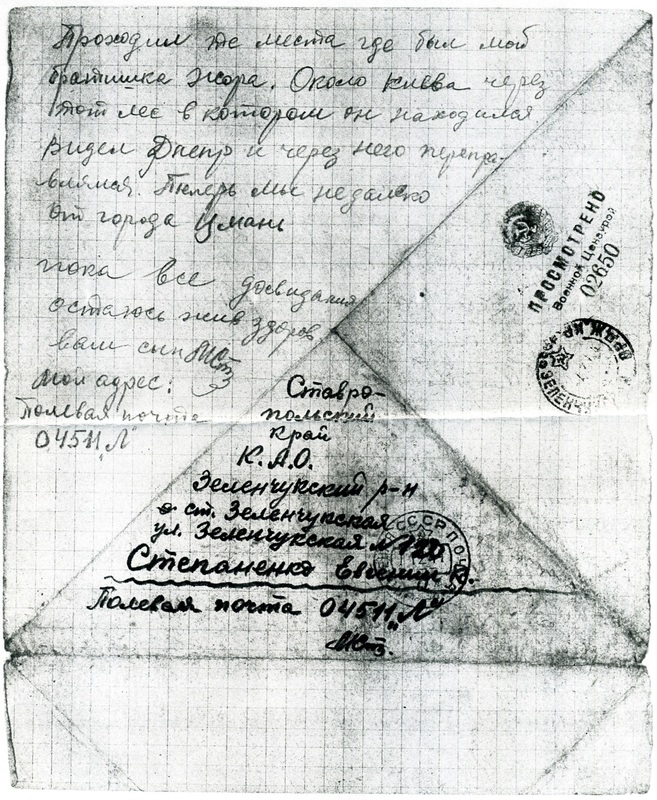 Проходил те места где был мой
братишка Жора. Около Киева через
тот лес в котором он находился
видел Днепр и через него перепра-
влялся. Теперь мы недалеко
от города Умань
пока все досвидания
остаюсь жив здоров
ваш сын
Мой адрес:
Полевая почта
04511 „Л"
ПРОСМОТРЕНО
Военной Цензурой
02650
Ставро-
польский
край
К.А.О.
Зеленчукский р-н
ст. Зеленчукская
ул. Зеленчукская № 120
Степаненко
Полевая почта 04511 „Л"
СССР ПОЧТА